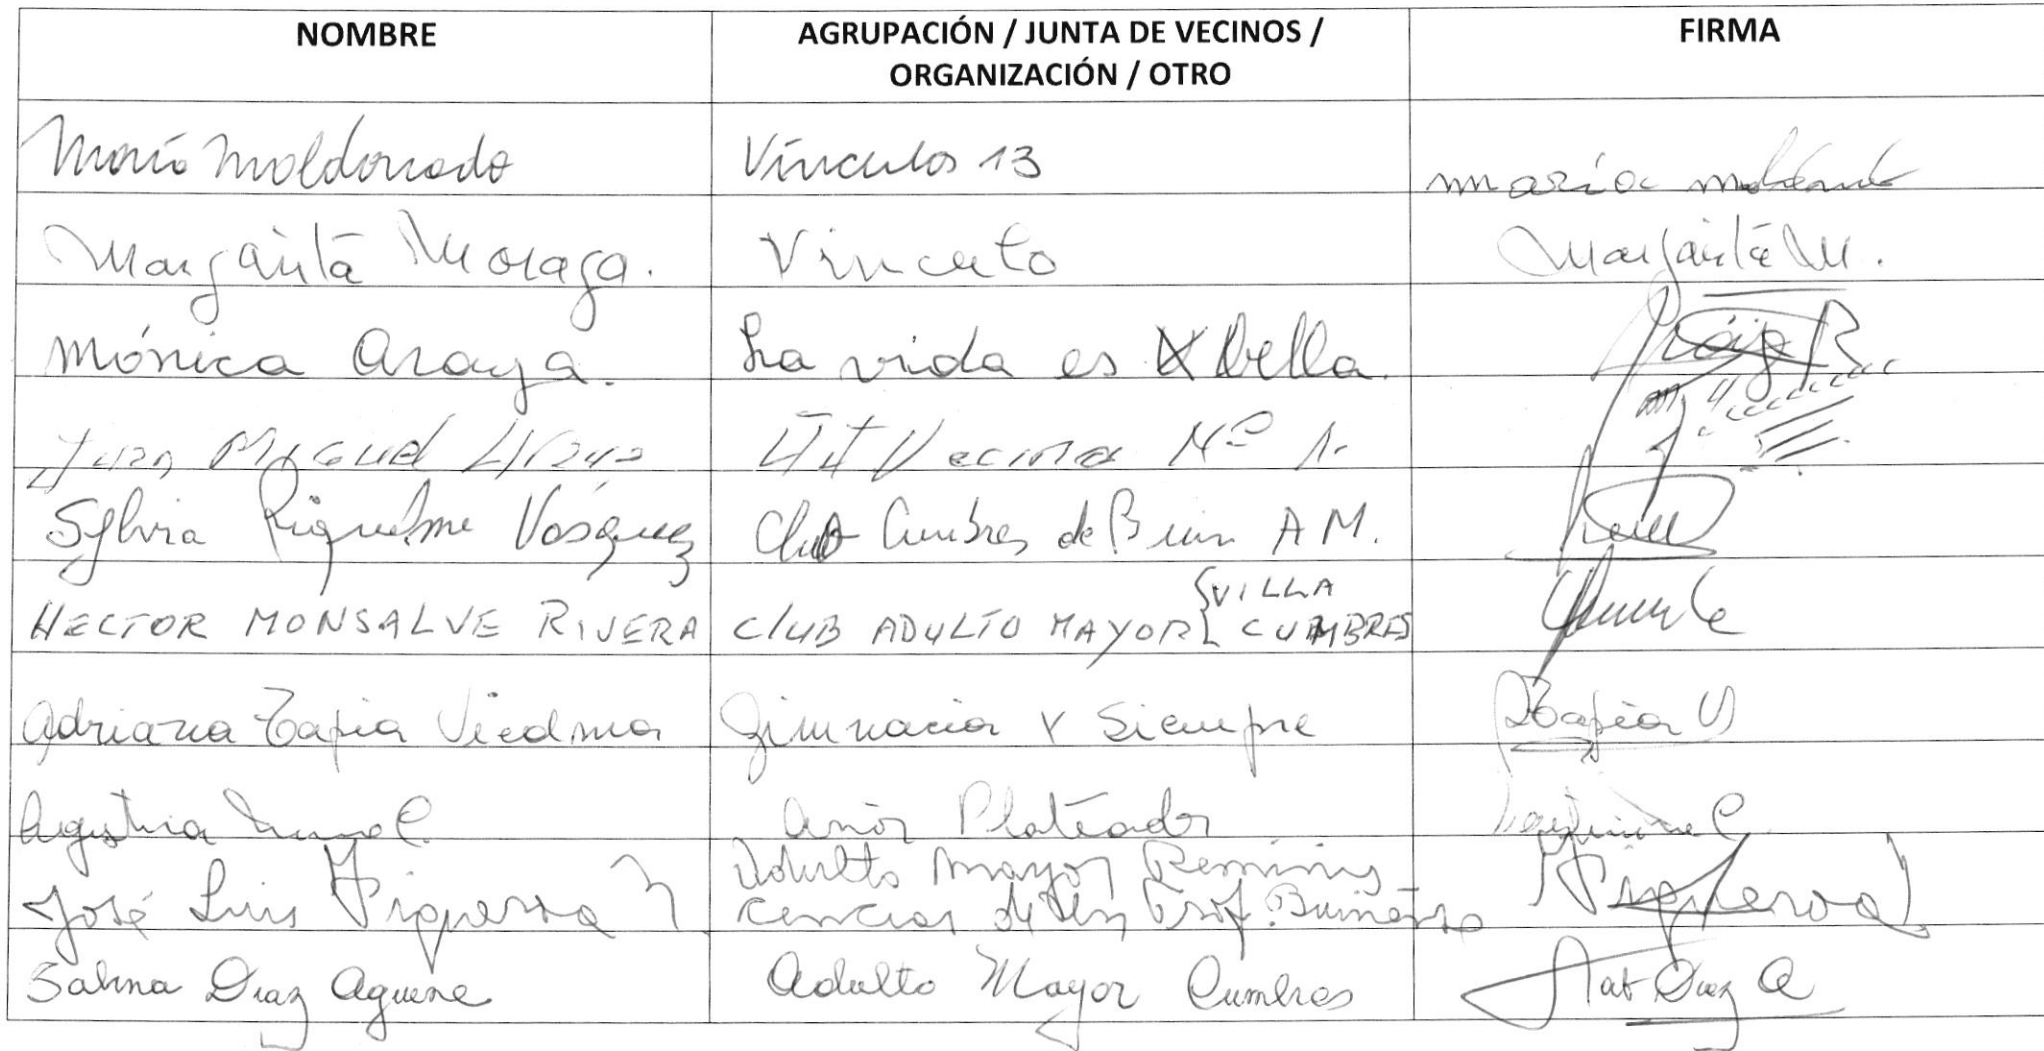 NOMBRE
AGRUPACIÓN / JUNTA DE VECINOS /
ORGANIZACIÓN / OTRO
FIRMA
María Maldonado Vínculos 13 maría
Margarita Moraga. Vinculo Margarita M.
Mónica Araya. La vida es bella.
Juan Miguel Vecinos Nº 1.
Sylvia Riquelme Vásquez Club Cumbres de Buin A M.
HECTOR MONSALVE RIVERA CLUB ADULTO MAYOR { VILLA
CUMBRES
Adriana Tapia Viedma Gimnacia x Siempre Tapia V
Agustina C. Años Plateados
José Luis Figueroa Adulto Mayor Reminis
cencias de Prof. Figueroa
Sabina Diaz Adulto Mayor Cumbres Sab Diaz A